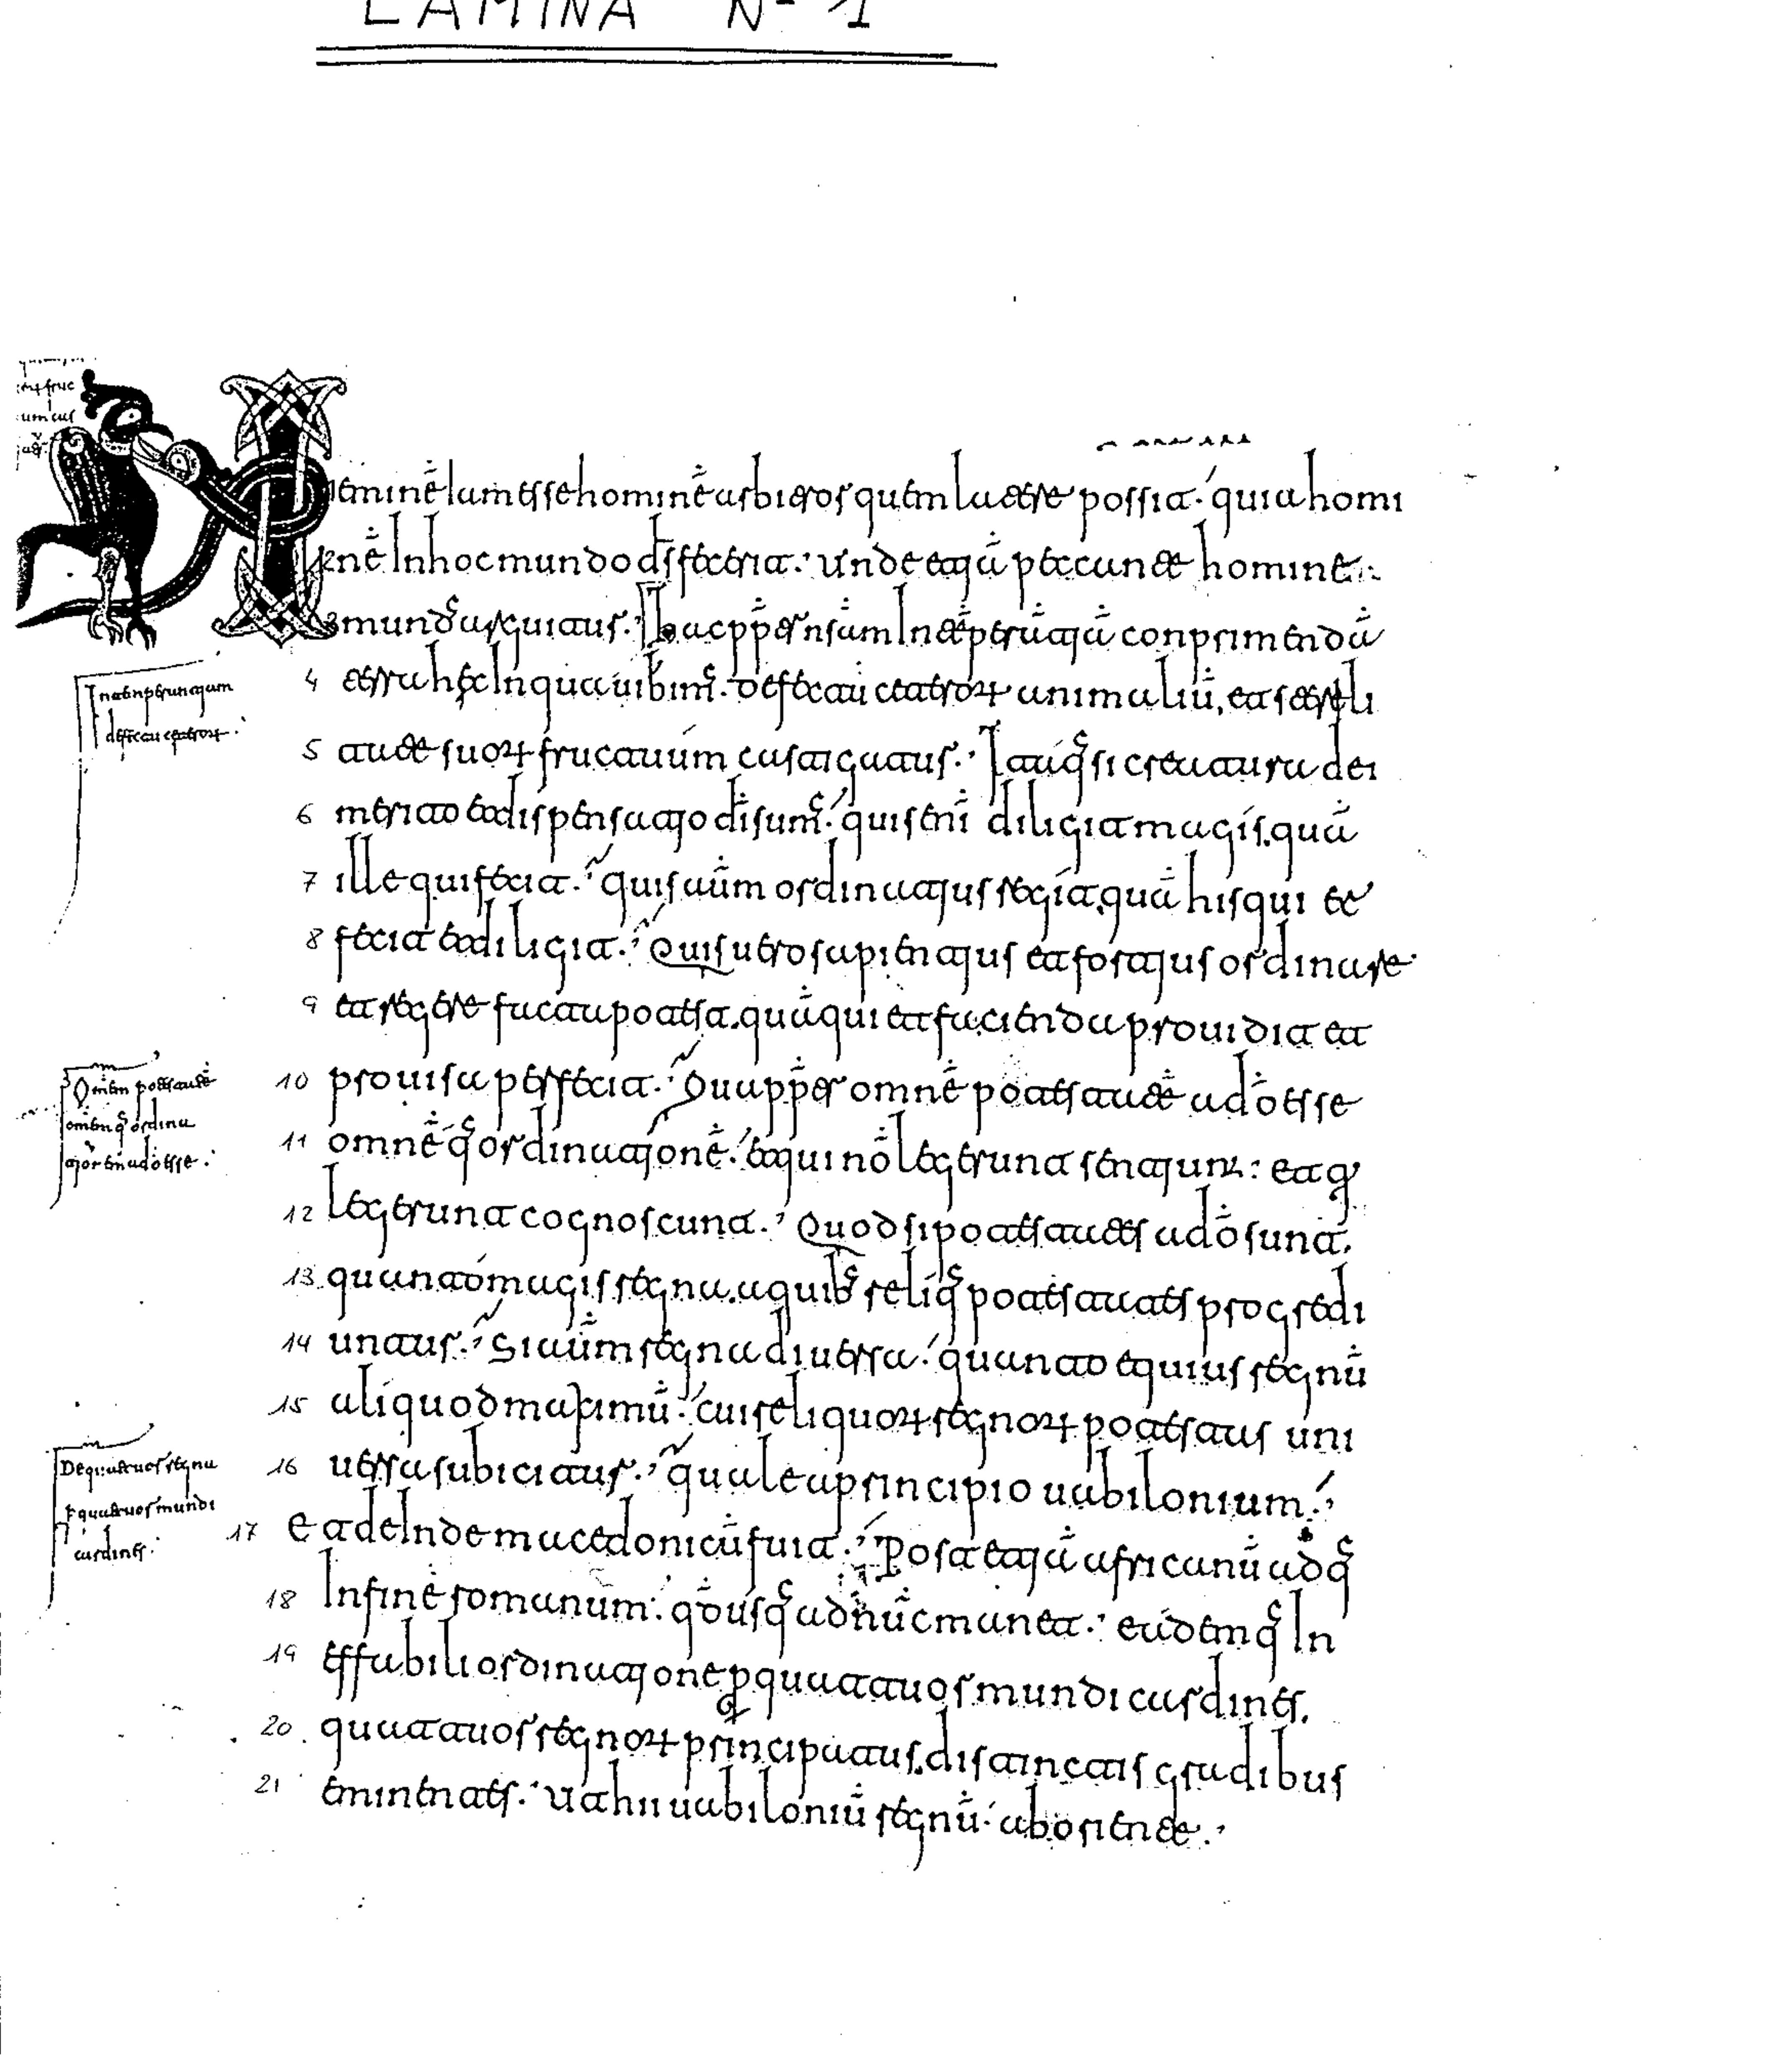 LAMINA Nº 1
neminē Iam esse hominē arbitror quem latere possit. quia homi
nē In hoc mundo ds̄ fecerit. unde etiā peccante homine
mundus arguitur. hac ppter nsām Intēperātiā conprimendā
4 terra hęc In qua uibimꝰ. defectu ceterorꝝ animaliū, et sterili
5 tate suorꝝ fructuum castigatur. Itaq; si creatura dei
6 merito et dispensatio dī sumꝰ. quis enī diligit magis. quā
7 ille qui fecit. quis aūm ordinatius regit, quā his qui et
8 fecit et diligit. Quis uero sapientius et fortius ordinare
9 et regere facta potest. quā qui et facienda prouidit et
10 prouisa perfecit. Quappter omnē potestatē a dō esse
11 omnēq; ordinationē. et qui nō legerunt sentiunt: et q
12 legerunt cognoscunt. Quod si potestates a dō sunt.
13 quanto magis regna. a quibꝰ reliq; potestates progredi
14 untur. Si aūm regna diuersa. quanto equius regnū
15 aliquod maximū. cui reliquorꝝ regnorꝝ potestas uni
16 uersa subicitur. quale a principio uabilonium.
17 Et deInde macedonicū fuit. Post etiā africanū adq;
18 In finē romanum. qd usq; ad nūc manet. eademq; In
19 effabili ordinatione p quattuor mundi cardines.
20 quattuor regnorꝝ principatus. distinctis gradibus
21 eminentes.
Intenperantiam
defectu ceterorꝝ.
Omnem potestatē
omēnq; ordina
tionem a dō esse.
De quattuor regna
p quattuor mundi
cardines.